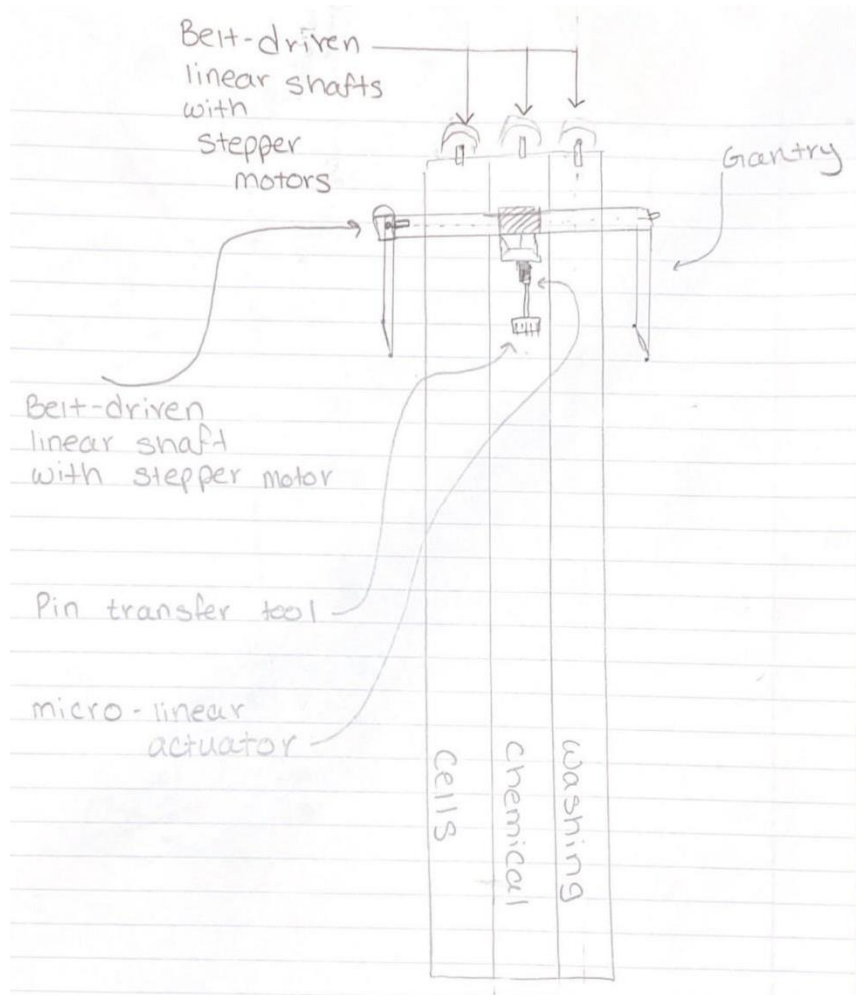 Belt-driven
linear shafts
with
stepper
motors
Gantry
Belt-driven
linear shaft
with stepper motor
Pin transfer tool
micro-linear
actuator
Cells
Chemical
Washing